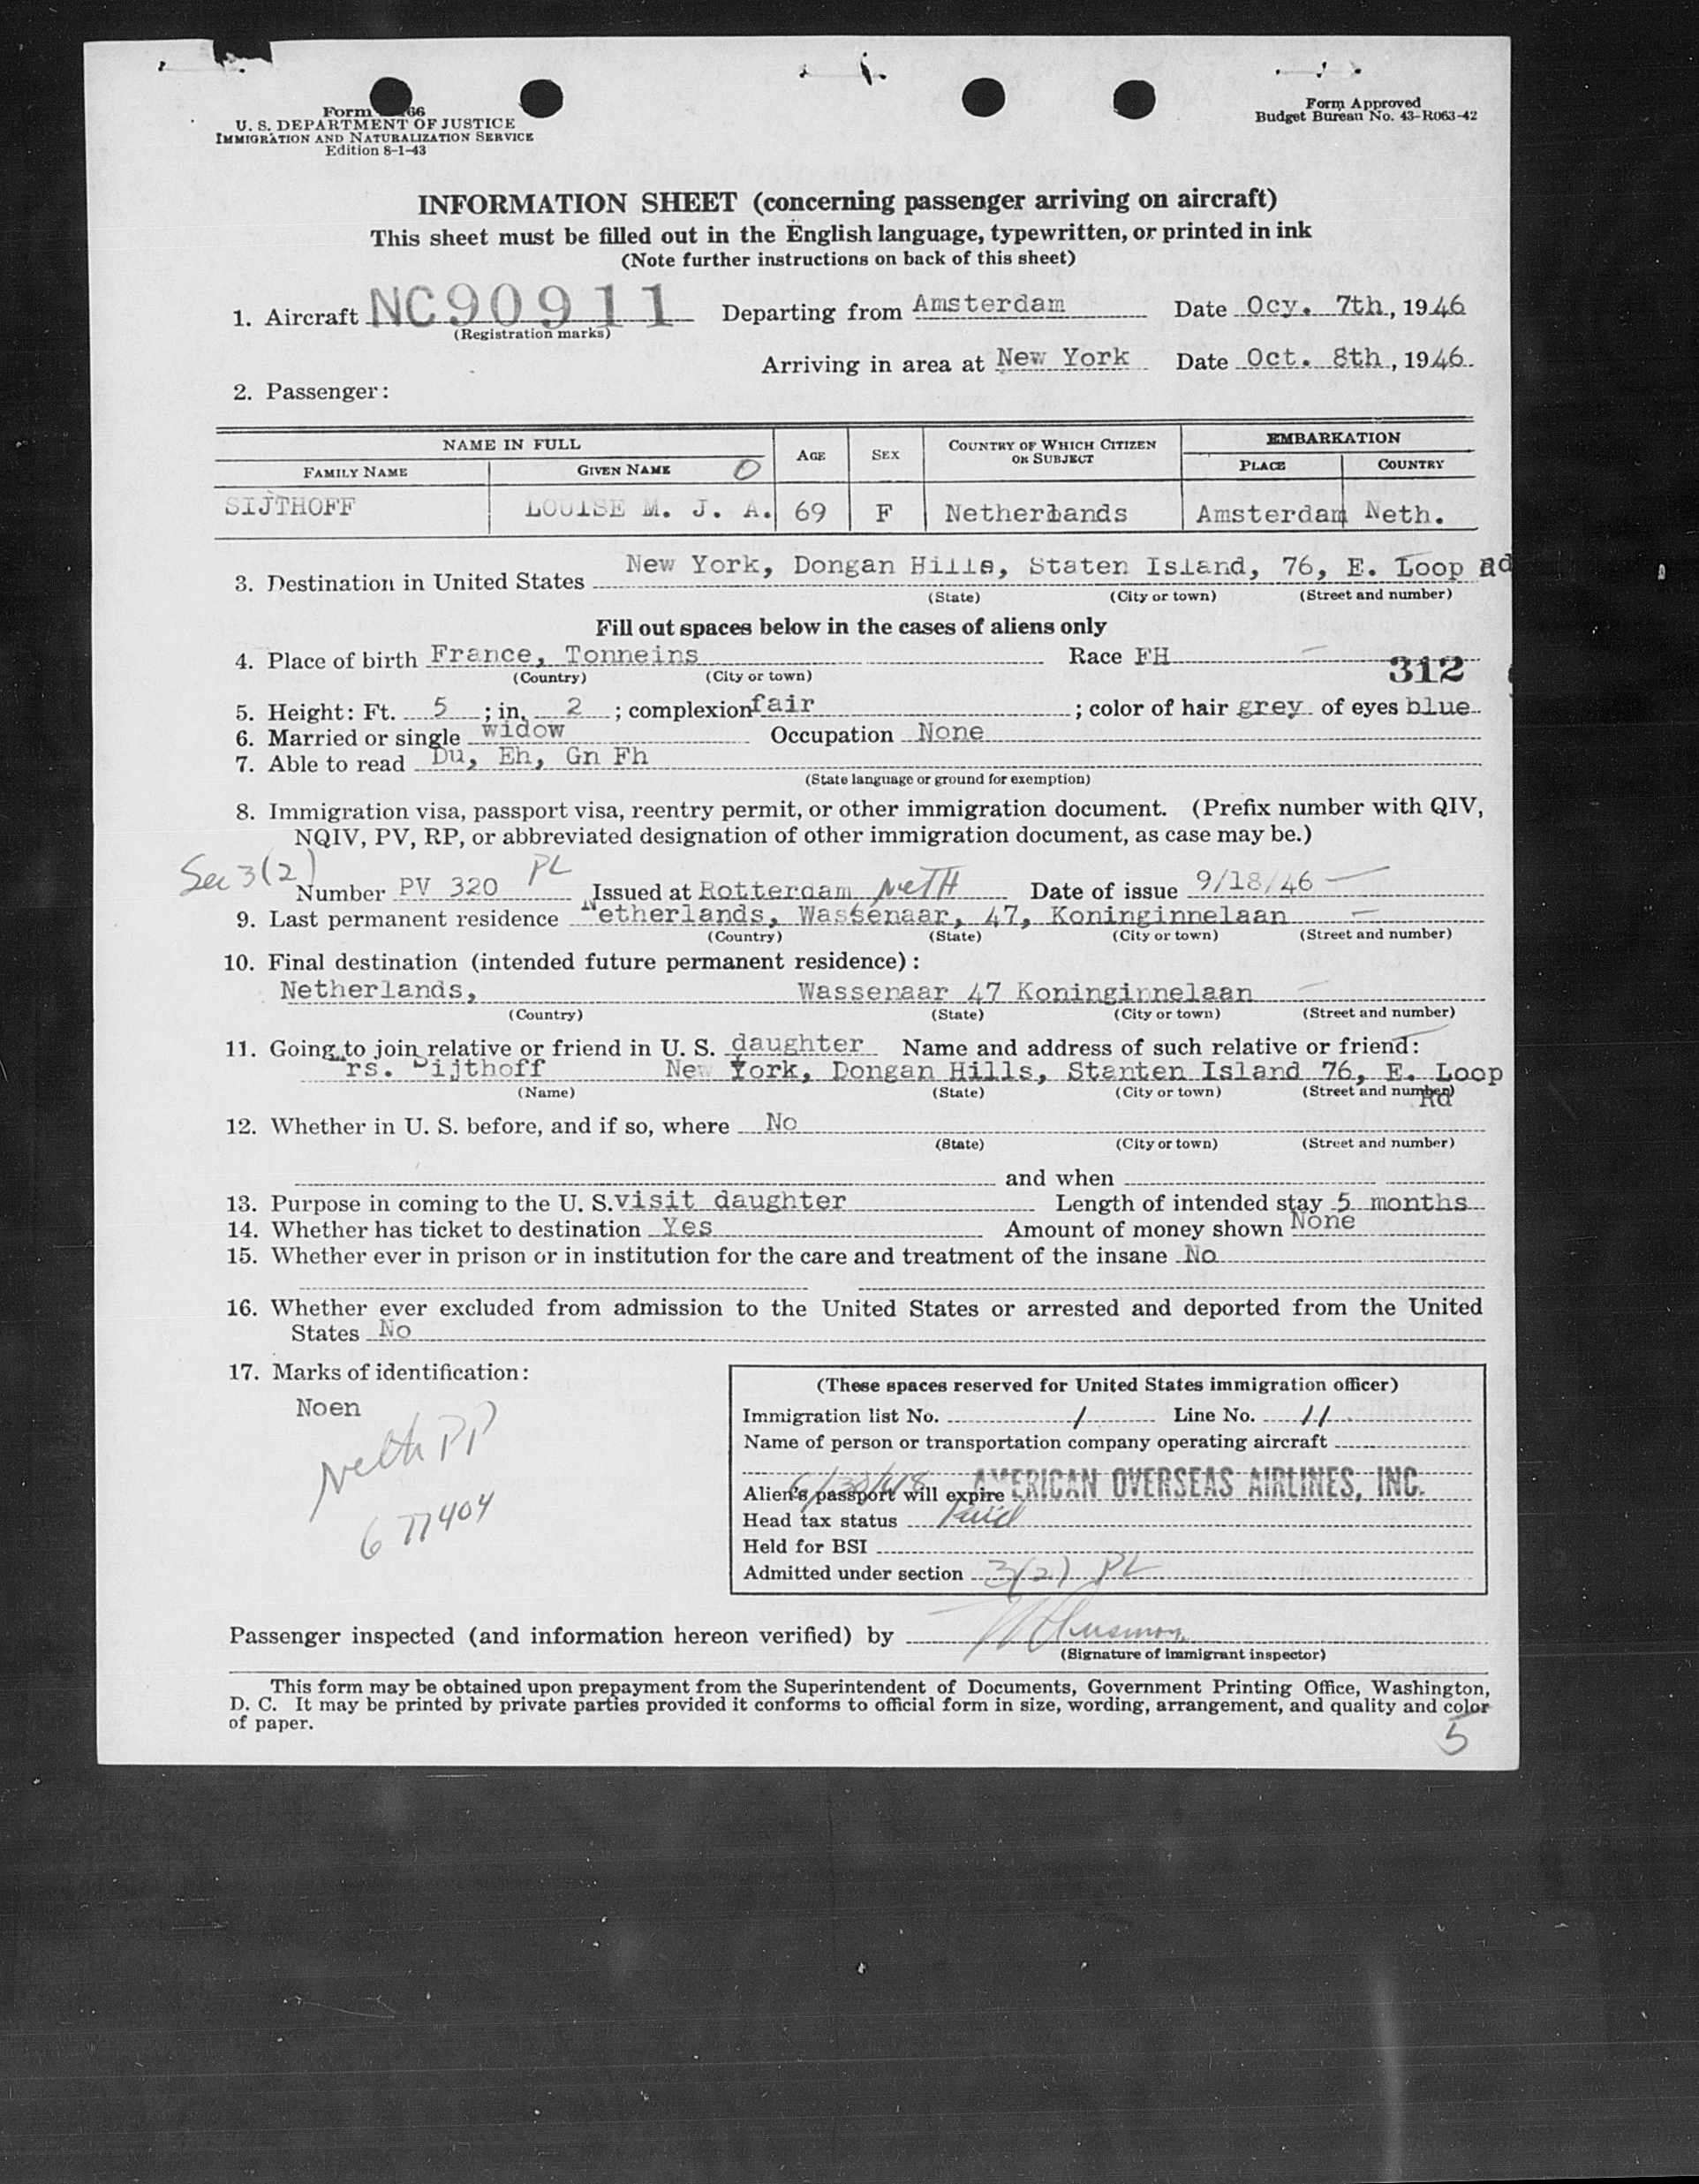 Form 66
U. S. DEPARTMENT OF JUSTICE
IMMIGRATION AND NATURALIZATION SERVICE
Edition 8-1-43
Form Approved
Budget Bureau No. 43-R063-42
INFORMATION SHEET (concerning passenger arriving on aircraft)
This sheet must be filled out in the English language, typewritten, or printed in ink
(Note further instructions on back of this sheet)
1. Aircraft NC90911 Departing from Amsterdam Date Ocy. 7th, 1946
(Registration marks)
Arriving in area at New York Date Oct. 8th, 1946
2. Passenger:
NAME IN FULL AGE SEX COUNTRY OF WHICH CITIZEN OR SUBJECT EMBARKATION
FAMILY NAME GIVEN NAME O PLACE COUNTRY
SIJTHOFF LOUISE M. J. A. 69 F Netherlands Amsterdam Neth.
3. Destination in United States New York, Dongan Hills, Staten Island, 76, E. Loop Rd
(State) (City or town) (Street and number)
Fill out spaces below in the cases of aliens only
4. Place of birth France, Tonneins Race FH
(Country) (City or town)
312
5. Height: Ft. 5 ; in. 2 ; complexion fair ; color of hair grey of eyes blue
6. Married or single widow Occupation None
7. Able to read Du, Eh, Gn Fh
(State language or ground for exemption)
8. Immigration visa, passport visa, reentry permit, or other immigration document. (Prefix number with QIV,
NQIV, PV, RP, or abbreviated designation of other immigration document, as case may be.)
Sec 3(2) Number PV 320 PL Issued at Rotterdam NETH Date of issue 9/18/46
9. Last permanent residence Netherlands, Wassenaar, 47, Koninginnelaan
(Country) (State) (City or town) (Street and number)
10. Final destination (intended future permanent residence):
Netherlands, Wassenaar 47 Koninginnelaan
(Country) (State) (City or town) (Street and number)
11. Going to join relative or friend in U. S. daughter Name and address of such relative or friend:
rs. Sijthoff New York, Dongan Hills, Stanten Island 76, E. Loop
(Name) (State) (City or town) (Street and number)
Rd
12. Whether in U. S. before, and if so, where No
(State) (City or town) (Street and number)
and when
13. Purpose in coming to the U. S. visit daughter Length of intended stay 5 months
14. Whether has ticket to destination Yes Amount of money shown None
15. Whether ever in prison or in institution for the care and treatment of the insane No
16. Whether ever excluded from admission to the United States or arrested and deported from the United
States No
17. Marks of identification:
Noen
Neth PP
677404
(These spaces reserved for United States immigration officer)
Immigration list No. 1 Line No. 11
Name of person or transportation company operating aircraft
AMERICAN OVERSEAS AIRLINES, INC.
Alien's passport will expire 6/30/48
Head tax status Paid
Held for BSI
Admitted under section 3(2) PL
Passenger inspected (and information hereon verified) by
(Signature of immigrant inspector)
This form may be obtained upon prepayment from the Superintendent of Documents, Government Printing Office, Washington,
D. C. It may be printed by private parties provided it conforms to official form in size, wording, arrangement, and quality and color
of paper.
5